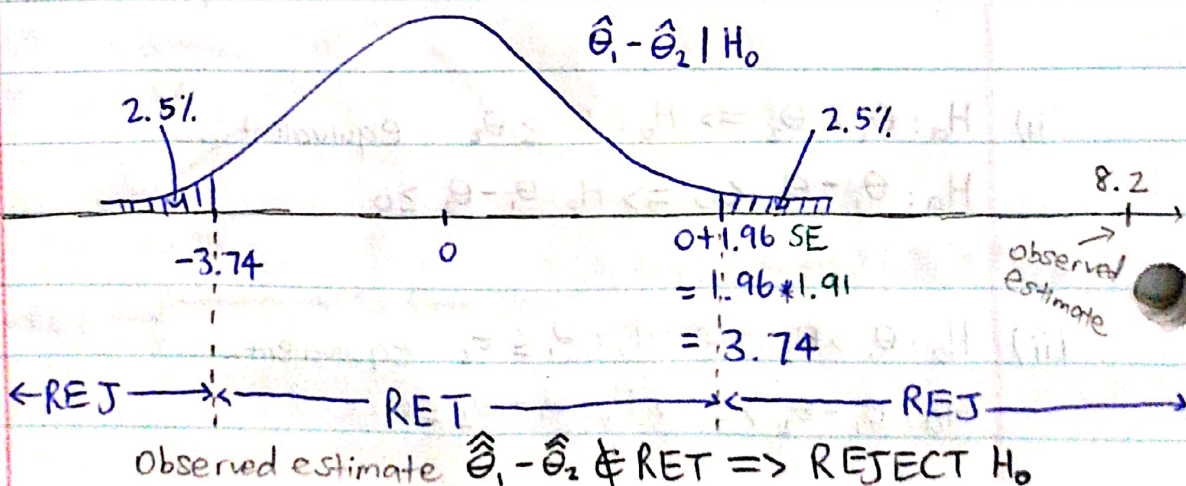 θ̂₁ - θ̂₂ | H₀
2.5%
2.5%
8.2
-3.74
0
0+1.96 SE
= 1.96*1.91
= 3.74
observed
estimate
←REJ→←RET→←REJ→
Observed estimate θ̂̂₁ - θ̂̂₂ ∉ RET => REJECT H₀